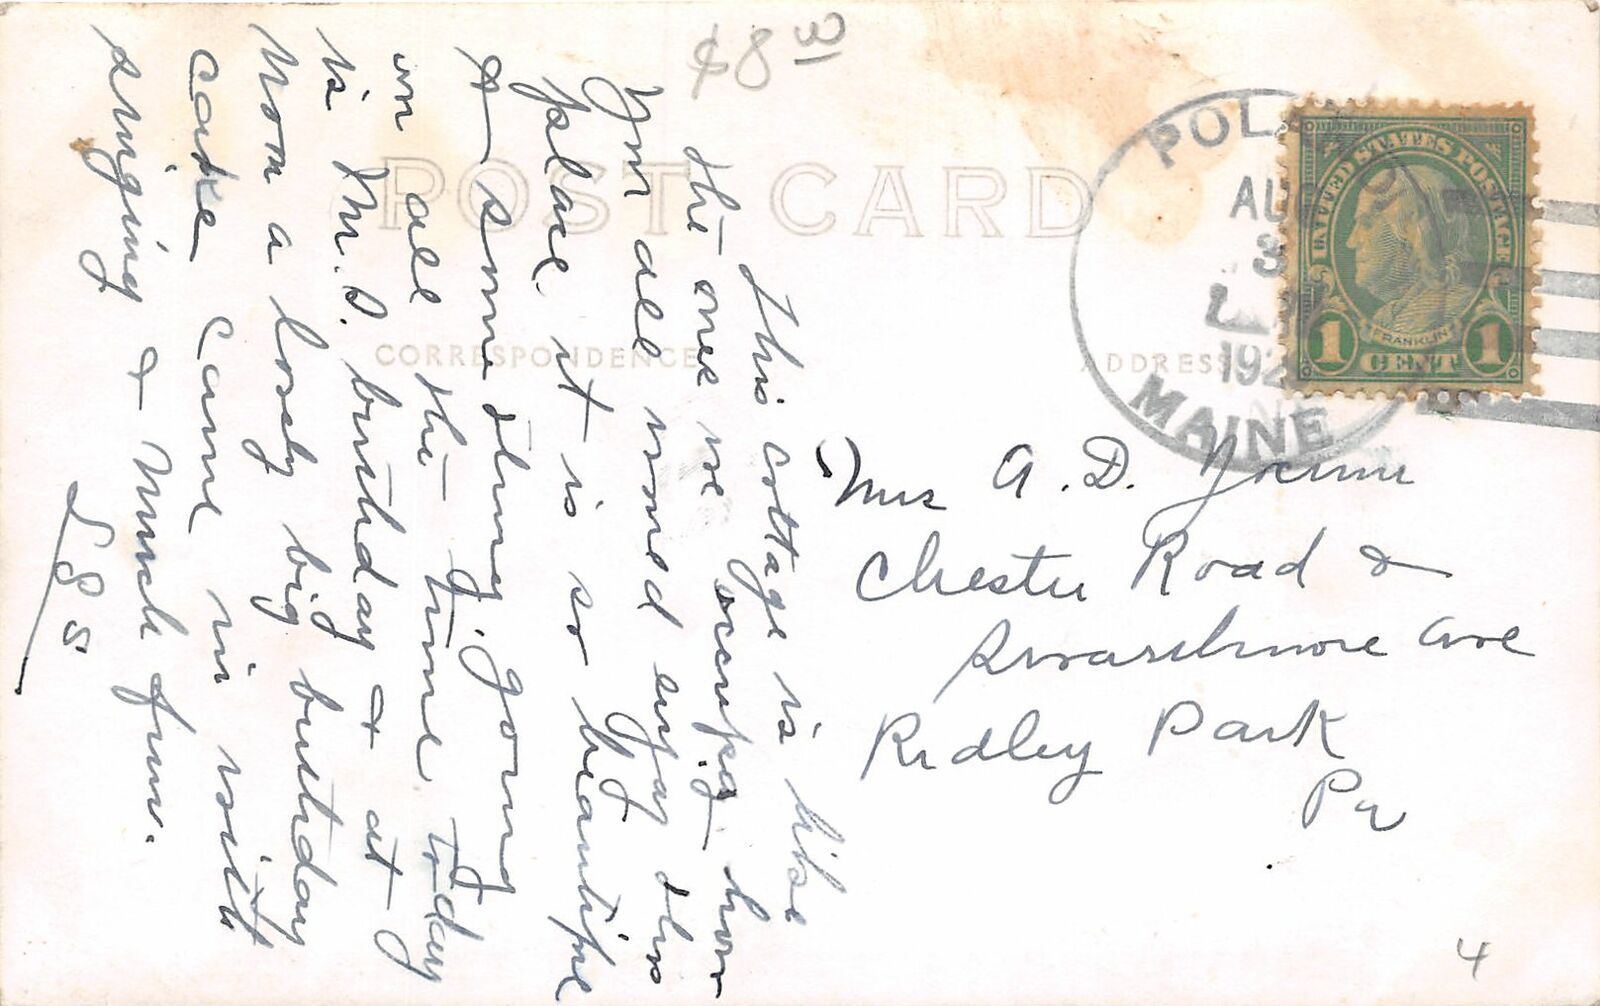 $8 3
POST CARD
CORRESPONDENCE
ADDRESS
POL
AUG
3
192
MAINE
UNITED STATES POSTAGE
FRANKLIN
1 CENT 1
This cottage is like
the ones we occupy - how
you all would enjoy this
place it is so beautiful
& something going
on all the time today
is Mr. S. birthday & at
noon a lovely big birthday
cake came in with
singing & much fun.
Mrs A. D.
Chester Road &
Swarthmore Ave
Ridley Park
Pa
4